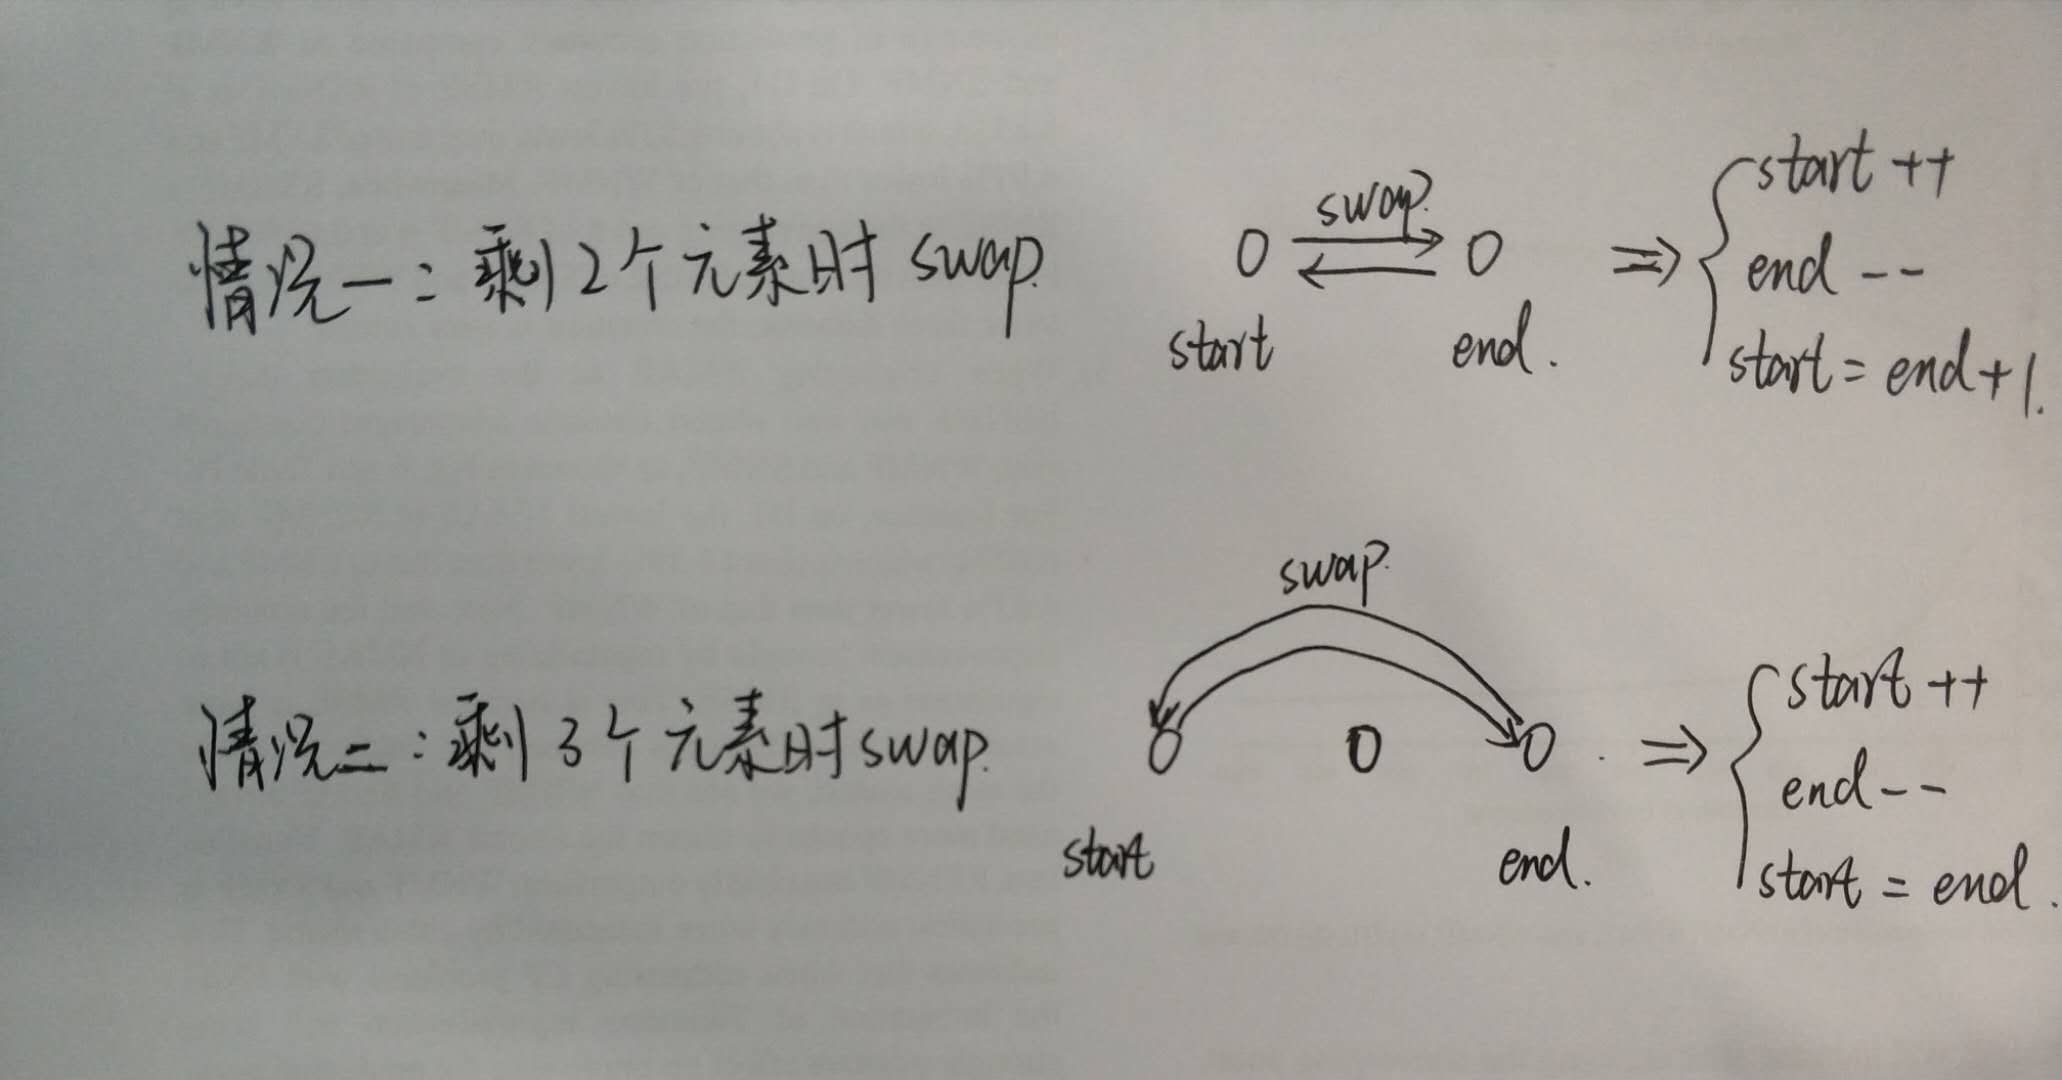 情况一：剩2个元素时 swap.
swap.
0 0
start end.
⇒ { start ++
end --
start = end+1.
情况二：剩3个元素时swap.
swap.
0 0 0
start end.
⇒ { start ++
end --
start = end.